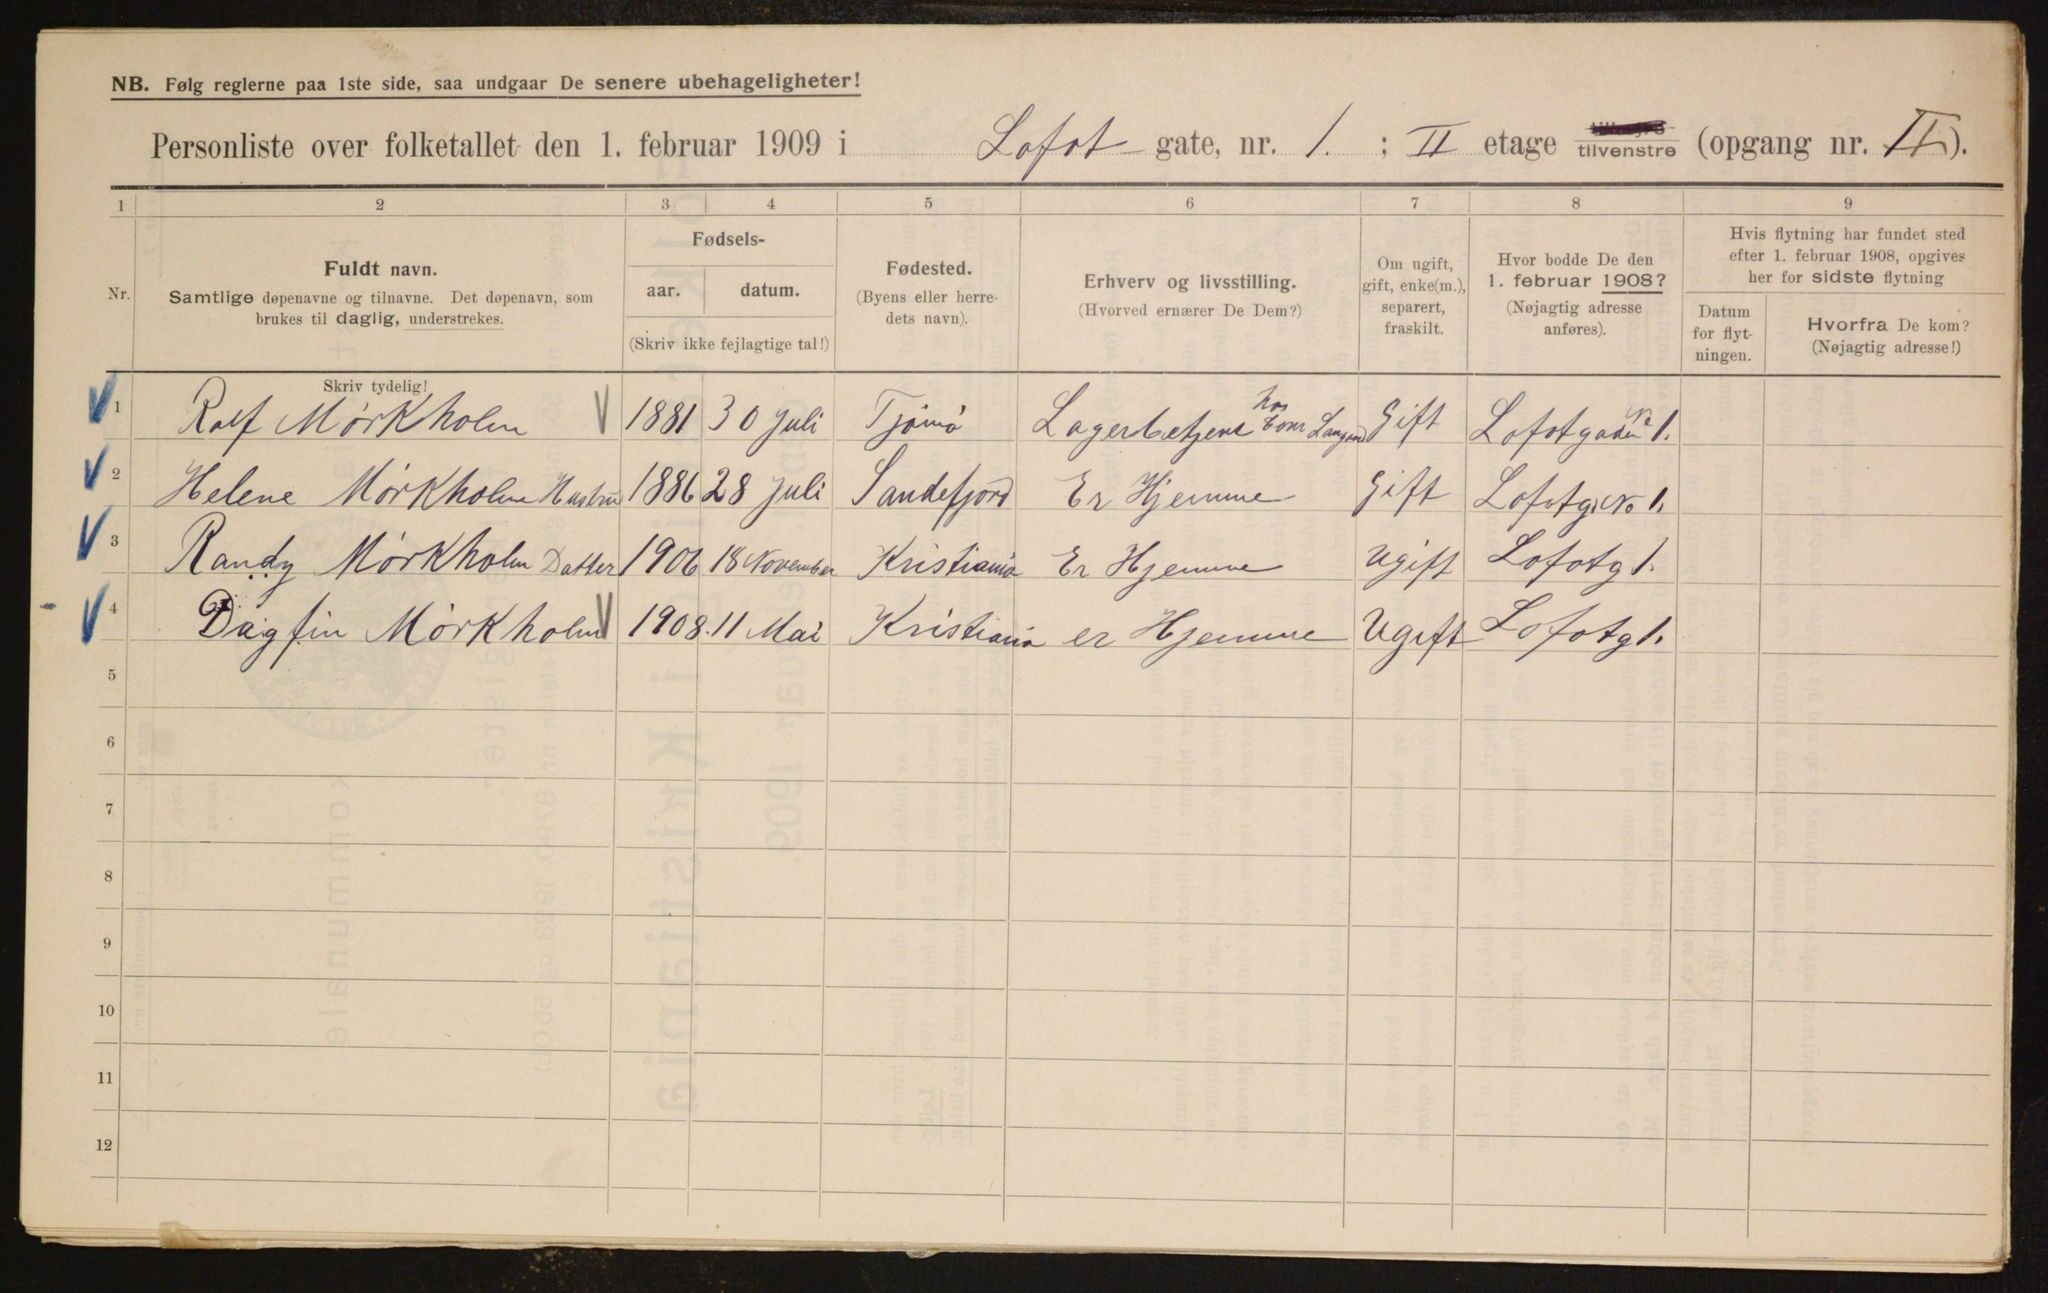 NB. Følg reglerne paa 1ste side, saa undgaar De senere ubehageligheter!
Personliste over folketallet den 1. februar 1909 i Lofot gate, nr. 1. ; II etage tilvenstre (opgang nr. II).
1 2 3 4 5 6 7 8 9
Nr.
Fuldt navn.
Samtlige døpenavne og tilnavne. Det døpenavn, som
brukes til daglig, understrekes.
Skriv tydelig!
Fødsels-
aar. datum.
(Skriv ikke fejlagtige tal!)
Fødested.
(Byens eller herre-
dets navn).
Erhverv og livsstilling.
(Hvorved ernærer De Dem?)
Om ugift,
gift, enke(m.),
separert,
fraskilt.
Hvor bodde De den
1. februar 1908?
(Nøjagtig adresse
anføres).
Hvis flytning har fundet sted
efter 1. februar 1908, opgives
her for sidste flytning
Datum
for flyt-
ningen.
Hvorfra De kom?
(Nøjagtig adresse!)
1 Ralf Mørkholm 1881 30 Juli Tjømø Lagerbetjent hos Gift Lofotgaden No 1.
2 Helene Mørkholm Hustru 1886 28 Juli Sandefjord Er Hjemme Gift Lofotg. No 1.
3 Randy Mørkholm Datter 1906 18 November Kristiania Er Hjemme Ugift Lofotg 1.
4 Dagfin Mørkholm 1908. 11 Mai Kristiania er Hjemme Ugift Lofotg 1.
5
6
7
8
9
10
11
12